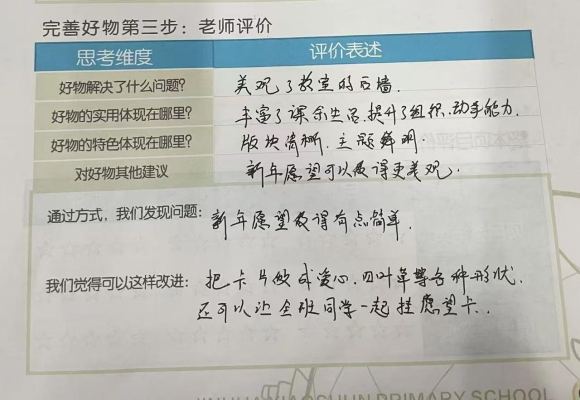 完善好物第三步：老师评价
思考维度 评价表述
好物解决了什么问题? 美观了教室的后墙.
好物的实用体现在哪里? 丰富了课余生活,提升了组织、动手能力.
好物的特色体现在哪里? 版块清晰.主题鲜明.
对好物其他建议 新年愿望可以做得更美观.
通过方式，我们发现问题: 新年愿望做得有点简单.
我们觉得可以这样改进: 把卡片做成爱心、四叶草等各种形状.
还可以让全班同学一起挂愿望卡.
PRIMARY SCHOOL